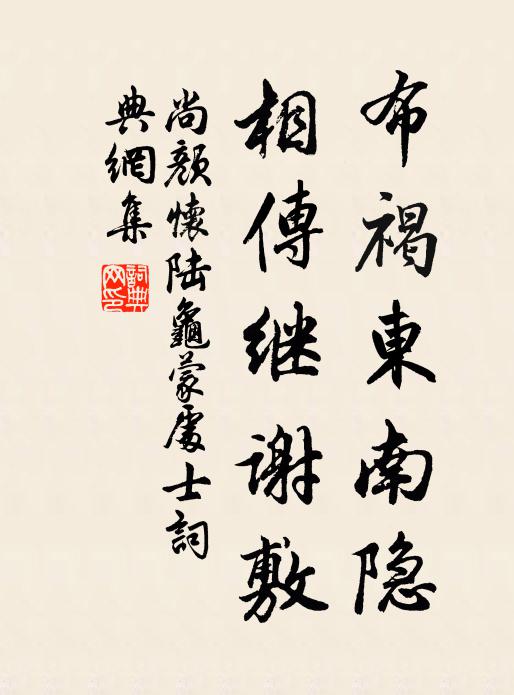 布褐東南隐
相傳继谢敷
尚颜懷陆龜蒙處士詞
典網集
詞典网印